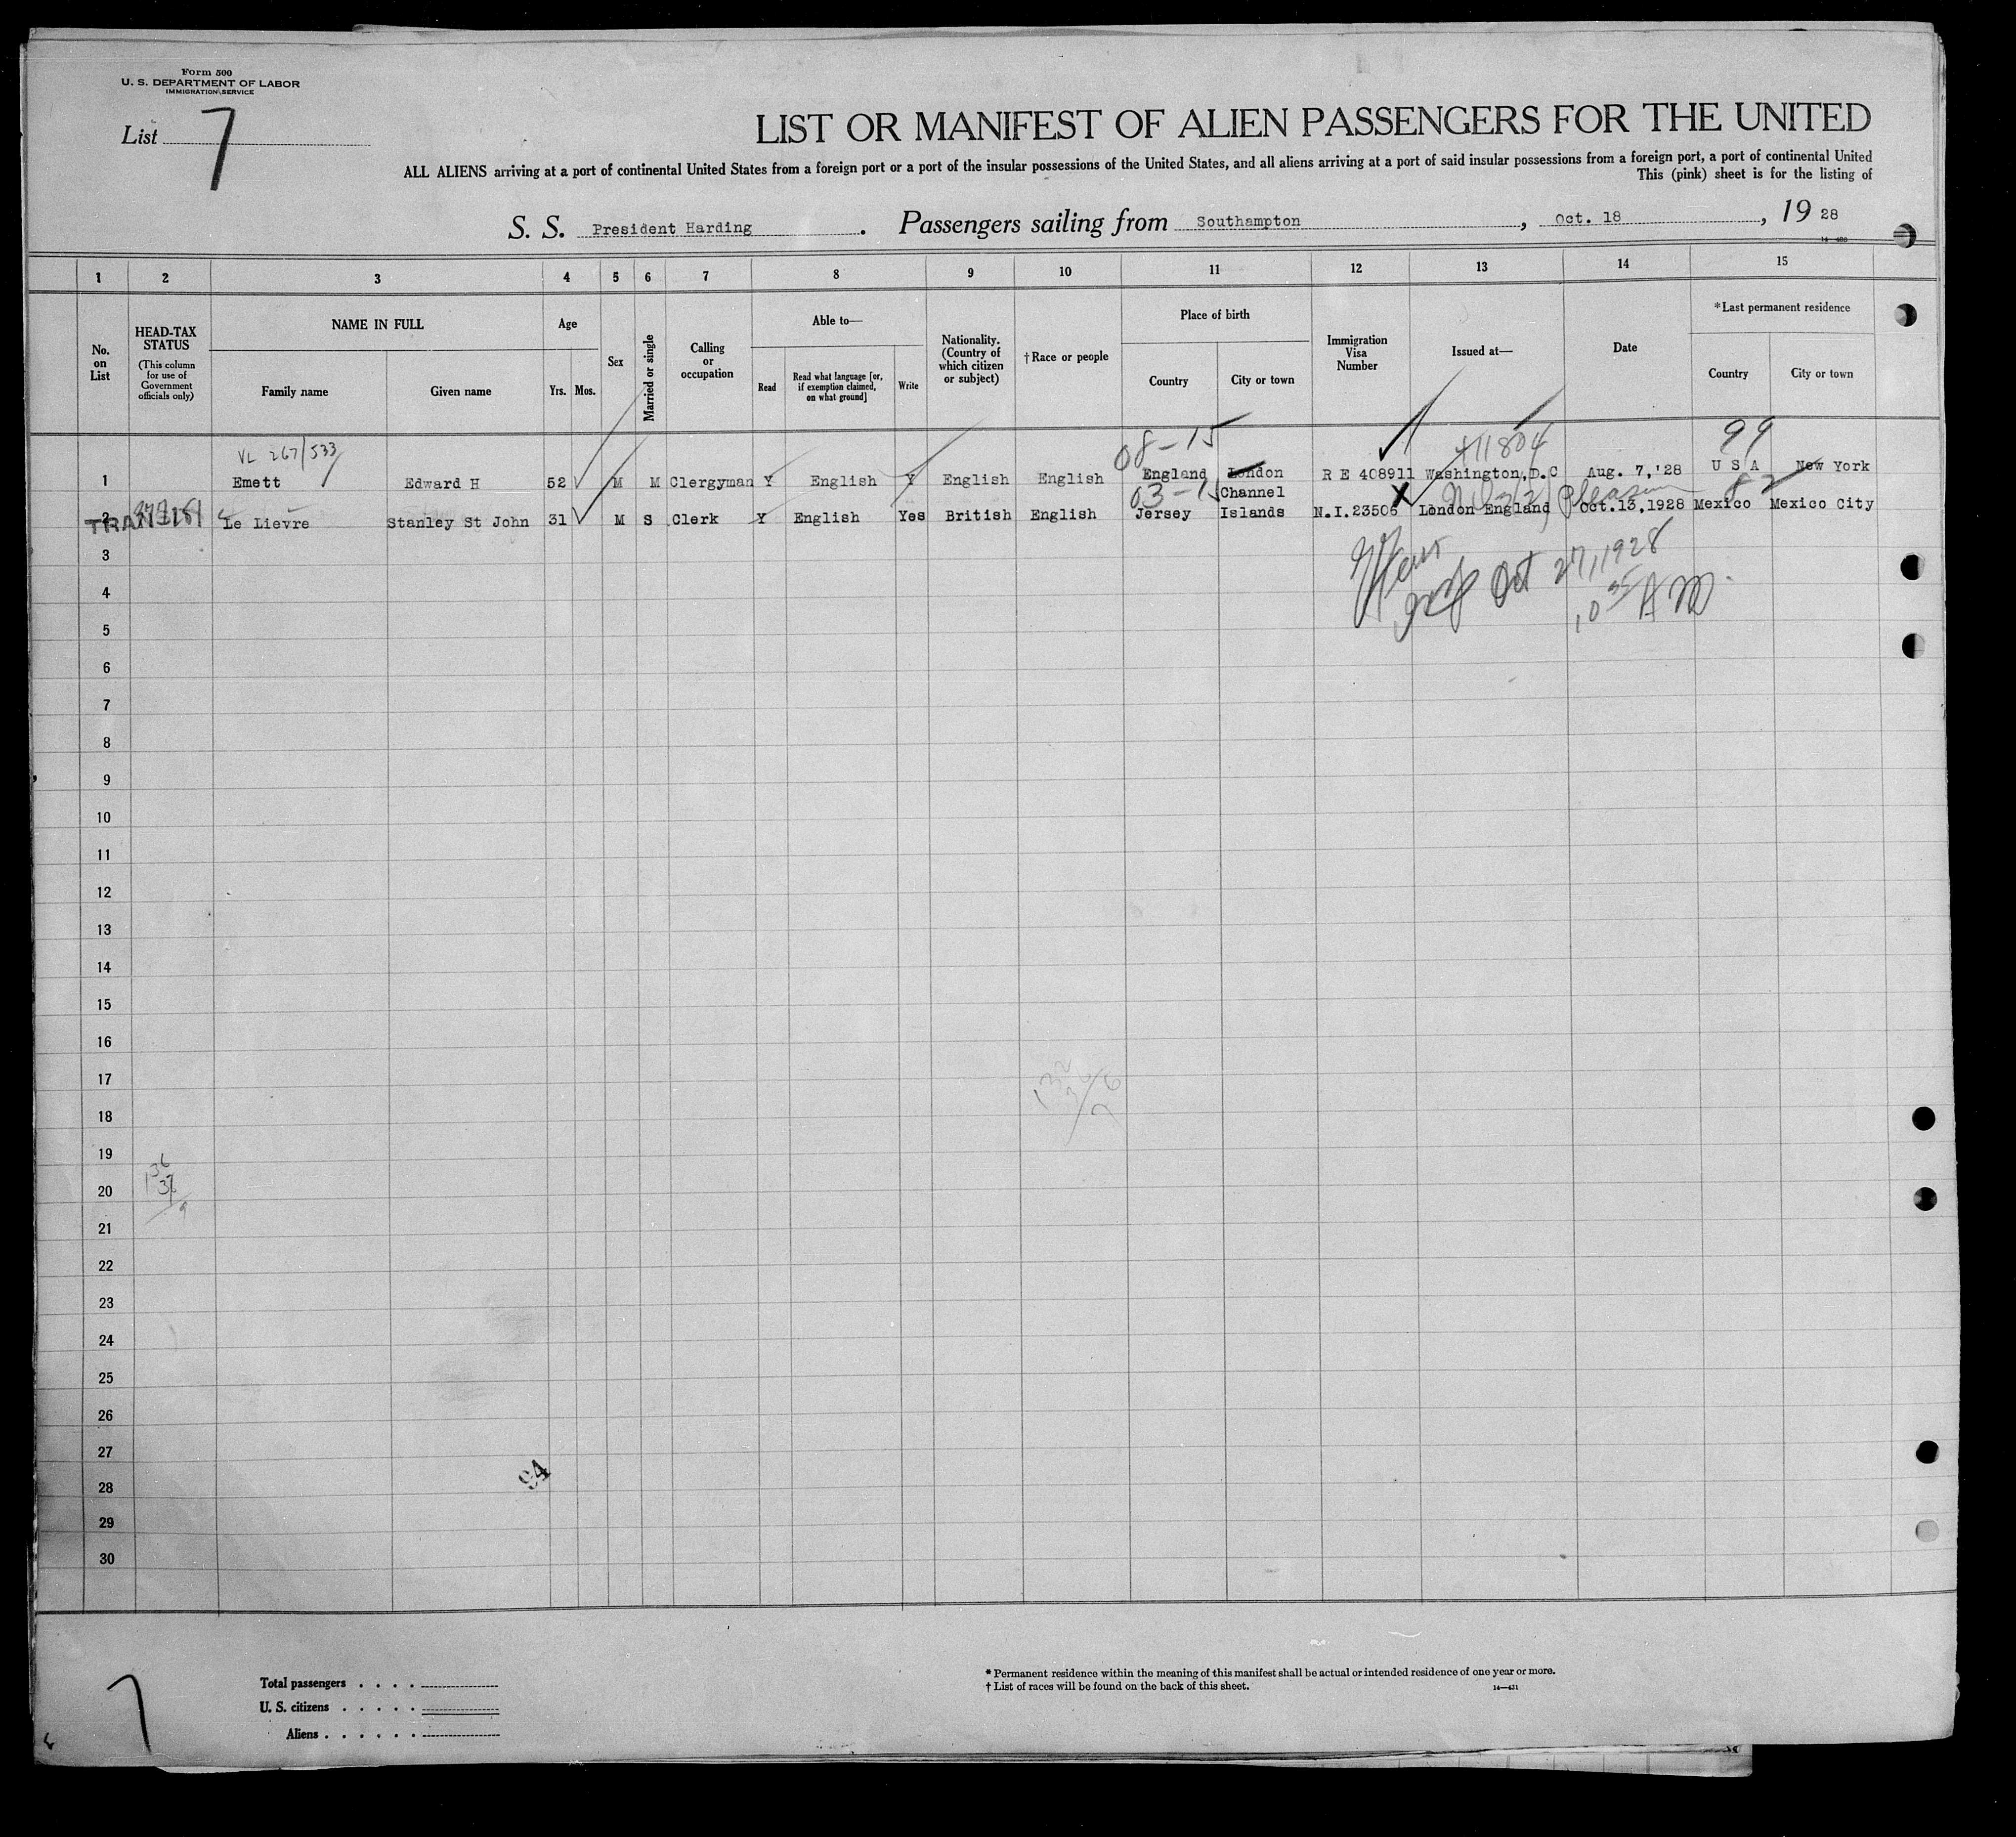 Form 500
U. S. DEPARTMENT OF LABOR
IMMIGRATION SERVICE
List 7
LIST OR MANIFEST OF ALIEN PASSENGERS FOR THE UNITED
ALL ALIENS arriving at a port of continental United States from a foreign port or a port of the insular possessions of the United States, and all aliens arriving at a port of said insular possessions from a foreign port, a port of continental United
This (pink) sheet is for the listing of
S. S. President Harding. Passengers sailing from Southampton, Oct. 18, 1928
1 2 3 4 5 6 7 8 9 10 11 12 13 14 15
No. on List
HEAD-TAX STATUS
(This column for use of Government officials only)
NAME IN FULL
Family name
Given name
Age
Yrs. Mos.
Sex
Married or single
Calling or occupation
Able to—
Read
Read what language [or, if exemption claimed, on what ground]
Write
Nationality. (Country of which citizen or subject)
†Race or people
Place of birth
Country
City or town
Immigration Visa Number
Issued at—
Date
*Last permanent residence
Country
City or town
VL 267/533
08-15
411804
99
1 Emett Edward H 52 M M Clergyman Y English Y English English England London R E 408911 Washington, D.C Aug. 7,'28 U S A New York
03-15
2 TRANSIT Le Lievre Stanley St John 31 M S Clerk Y English Yes British English Jersey Channel Islands N.I.23506 London England Oct.13,1928 Mexico Mexico City
Oct 27, 1928
10 35 AM
3
4
5
6
7
8
9
10
11
12
13
14
15
16
17
18
19
20
21
22
23
24
25
26
27
28
29
30
94
7
Total passengers . . . .
U. S. citizens . . . . .
Aliens . . . . . .
* Permanent residence within the meaning of this manifest shall be actual or intended residence of one year or more.
† List of races will be found on the back of this sheet.
14—431